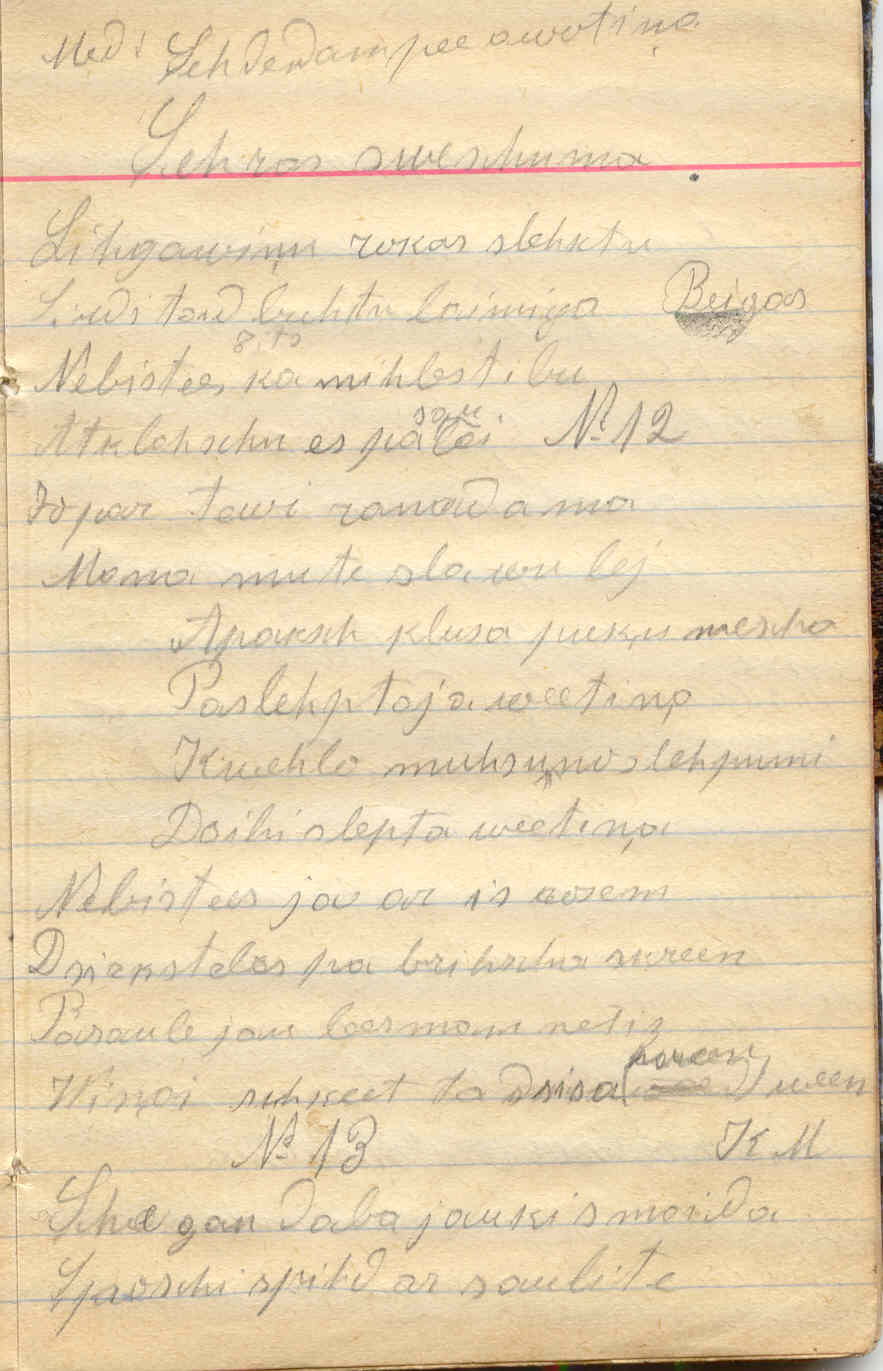 Med: Sehdedam pee awotiņa
Sehras sweschuma
Lihgawiņu rokas slehktu
Sirds tad buhtu laimiga Beigas
Nebistees, ka mihlestibu
Atklahschu es pa sau lei № 12
Jo par tawi runadama
Mana mute slawu lej
Apaksch klusa puķu mescha
Paslehptaja weetiņa
Kwehlo muhsu noslehpumi
Daihi slepta weetiņa
Nebistees jau ar is rosem
Dsirkstelas pa brihscha skreen
Pasaule jau leesmam netiz
Wiņai suhkeet ta dsisa ween
№ 13 K M
Sche gan daba jauki smaida
Sposchi spihd ar saulite